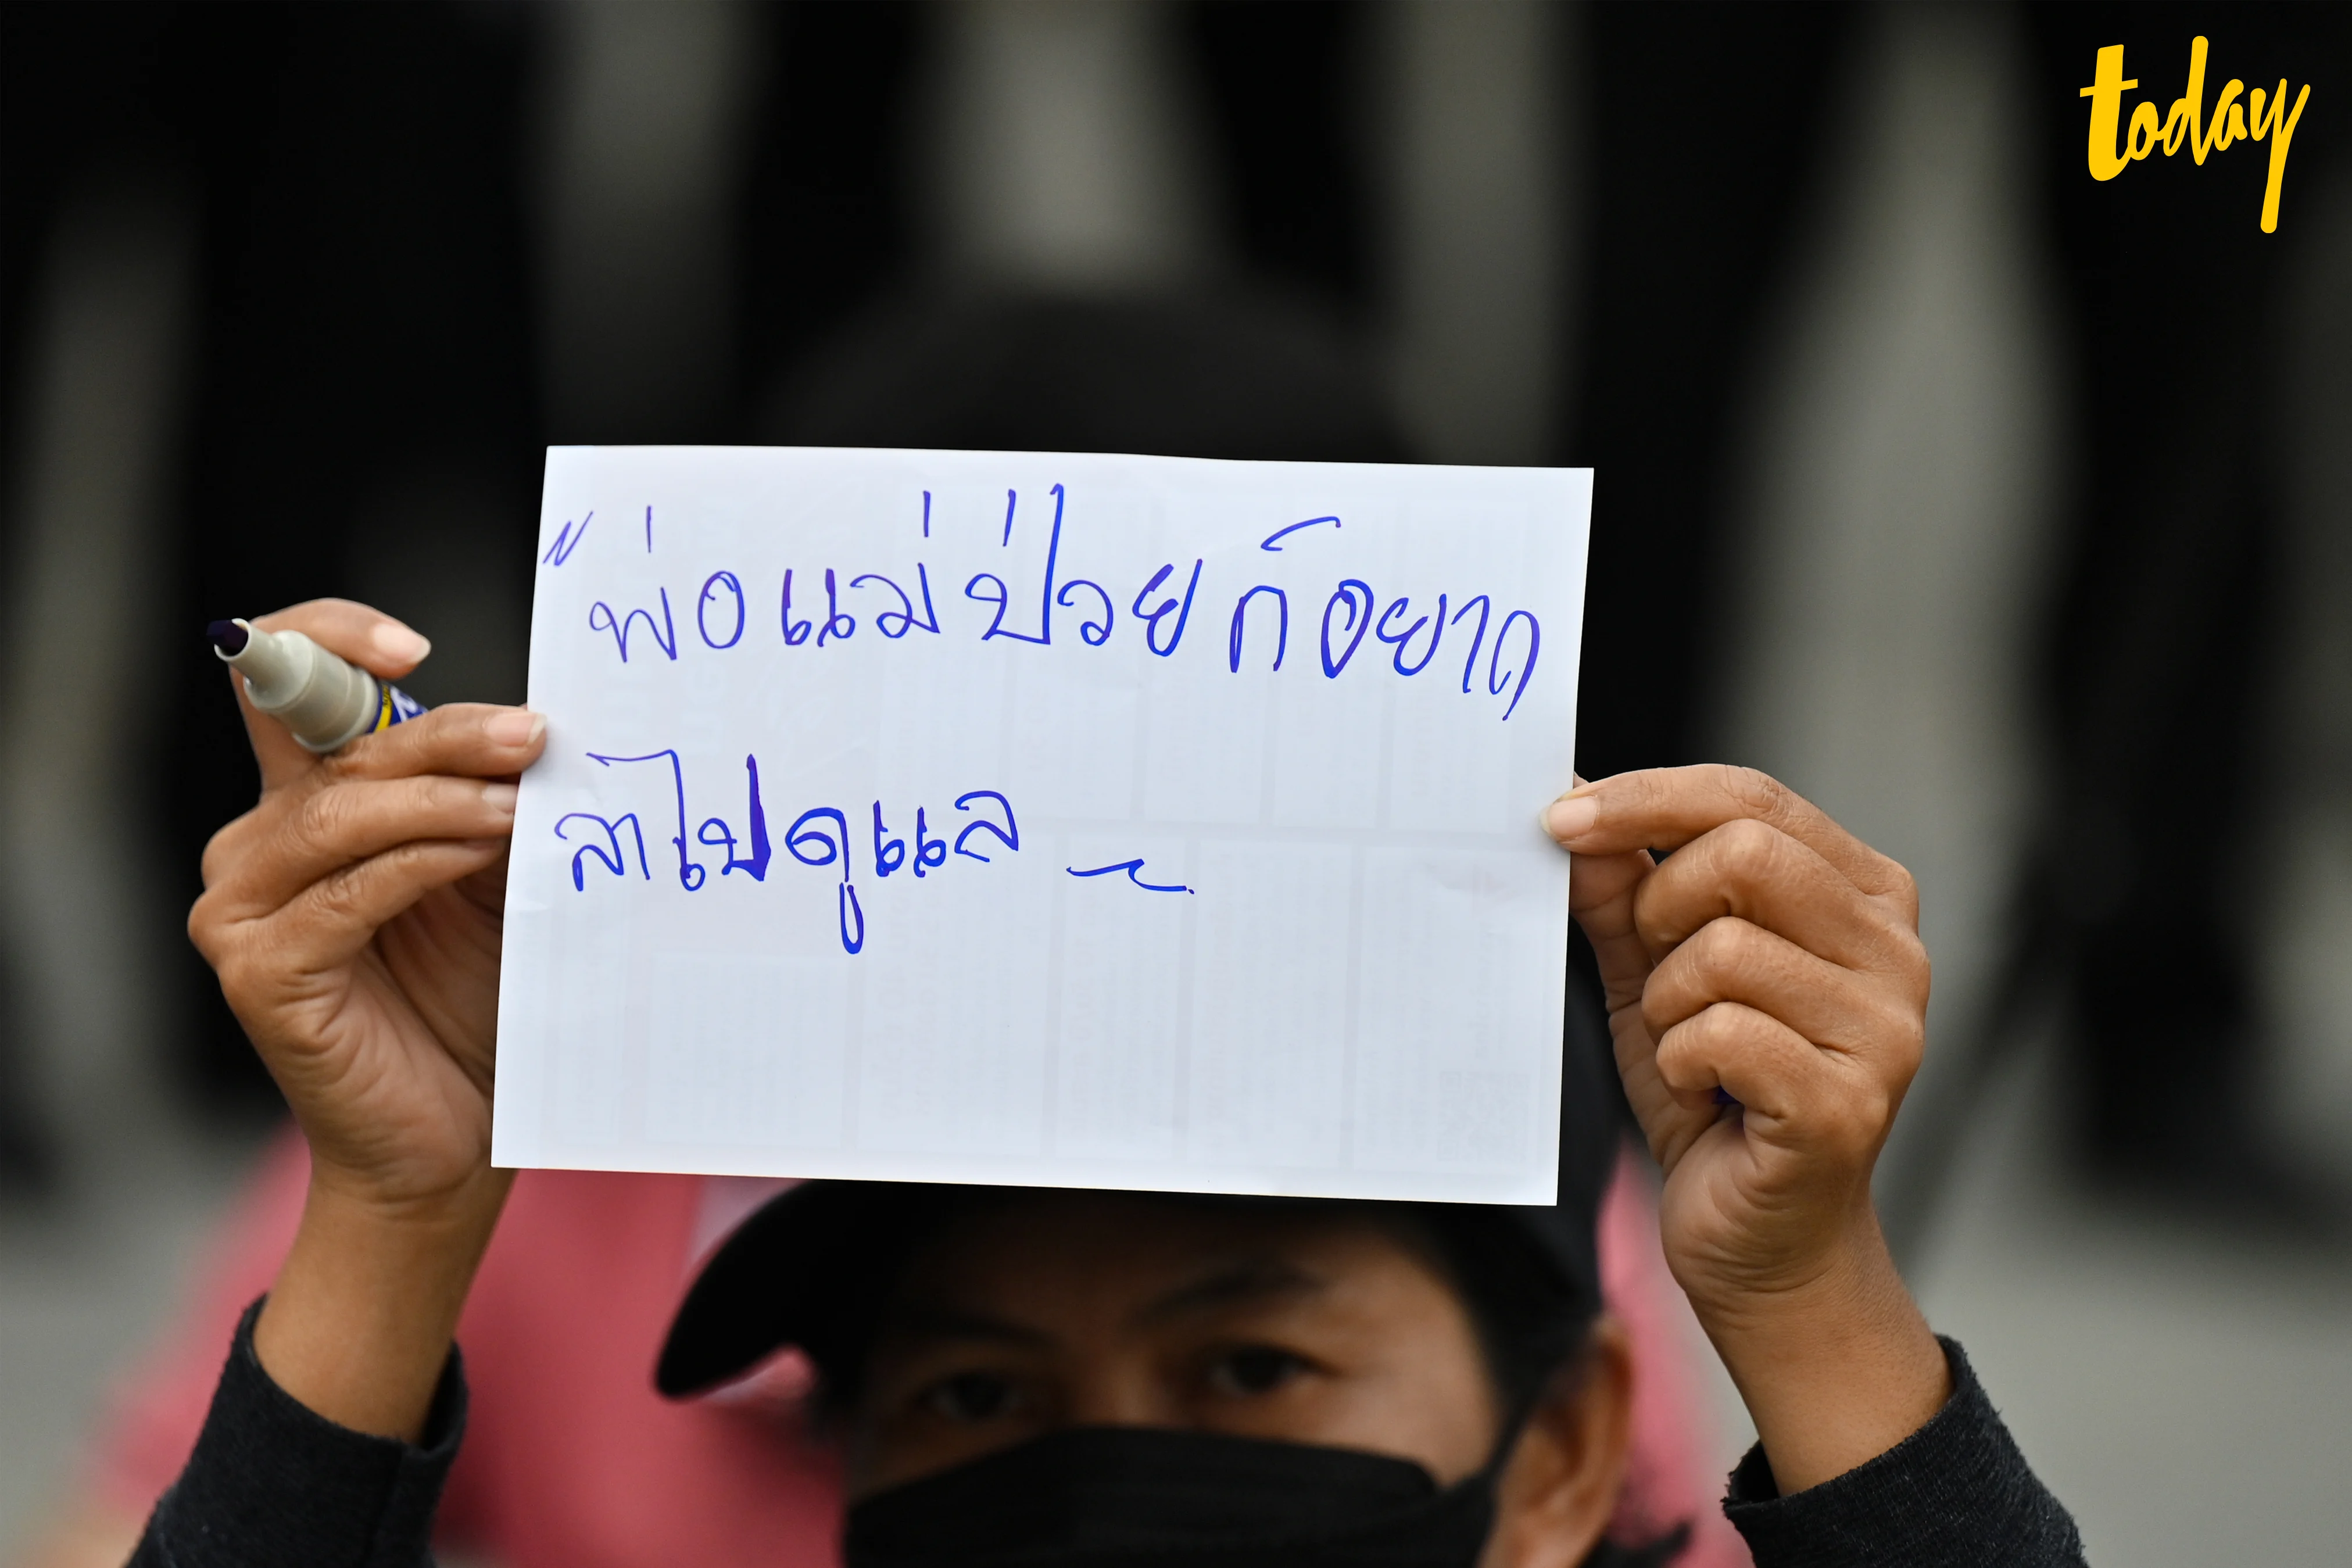 today
" พ่อแม่ป่วย ก็อยาก
ลาไปดูแล ~